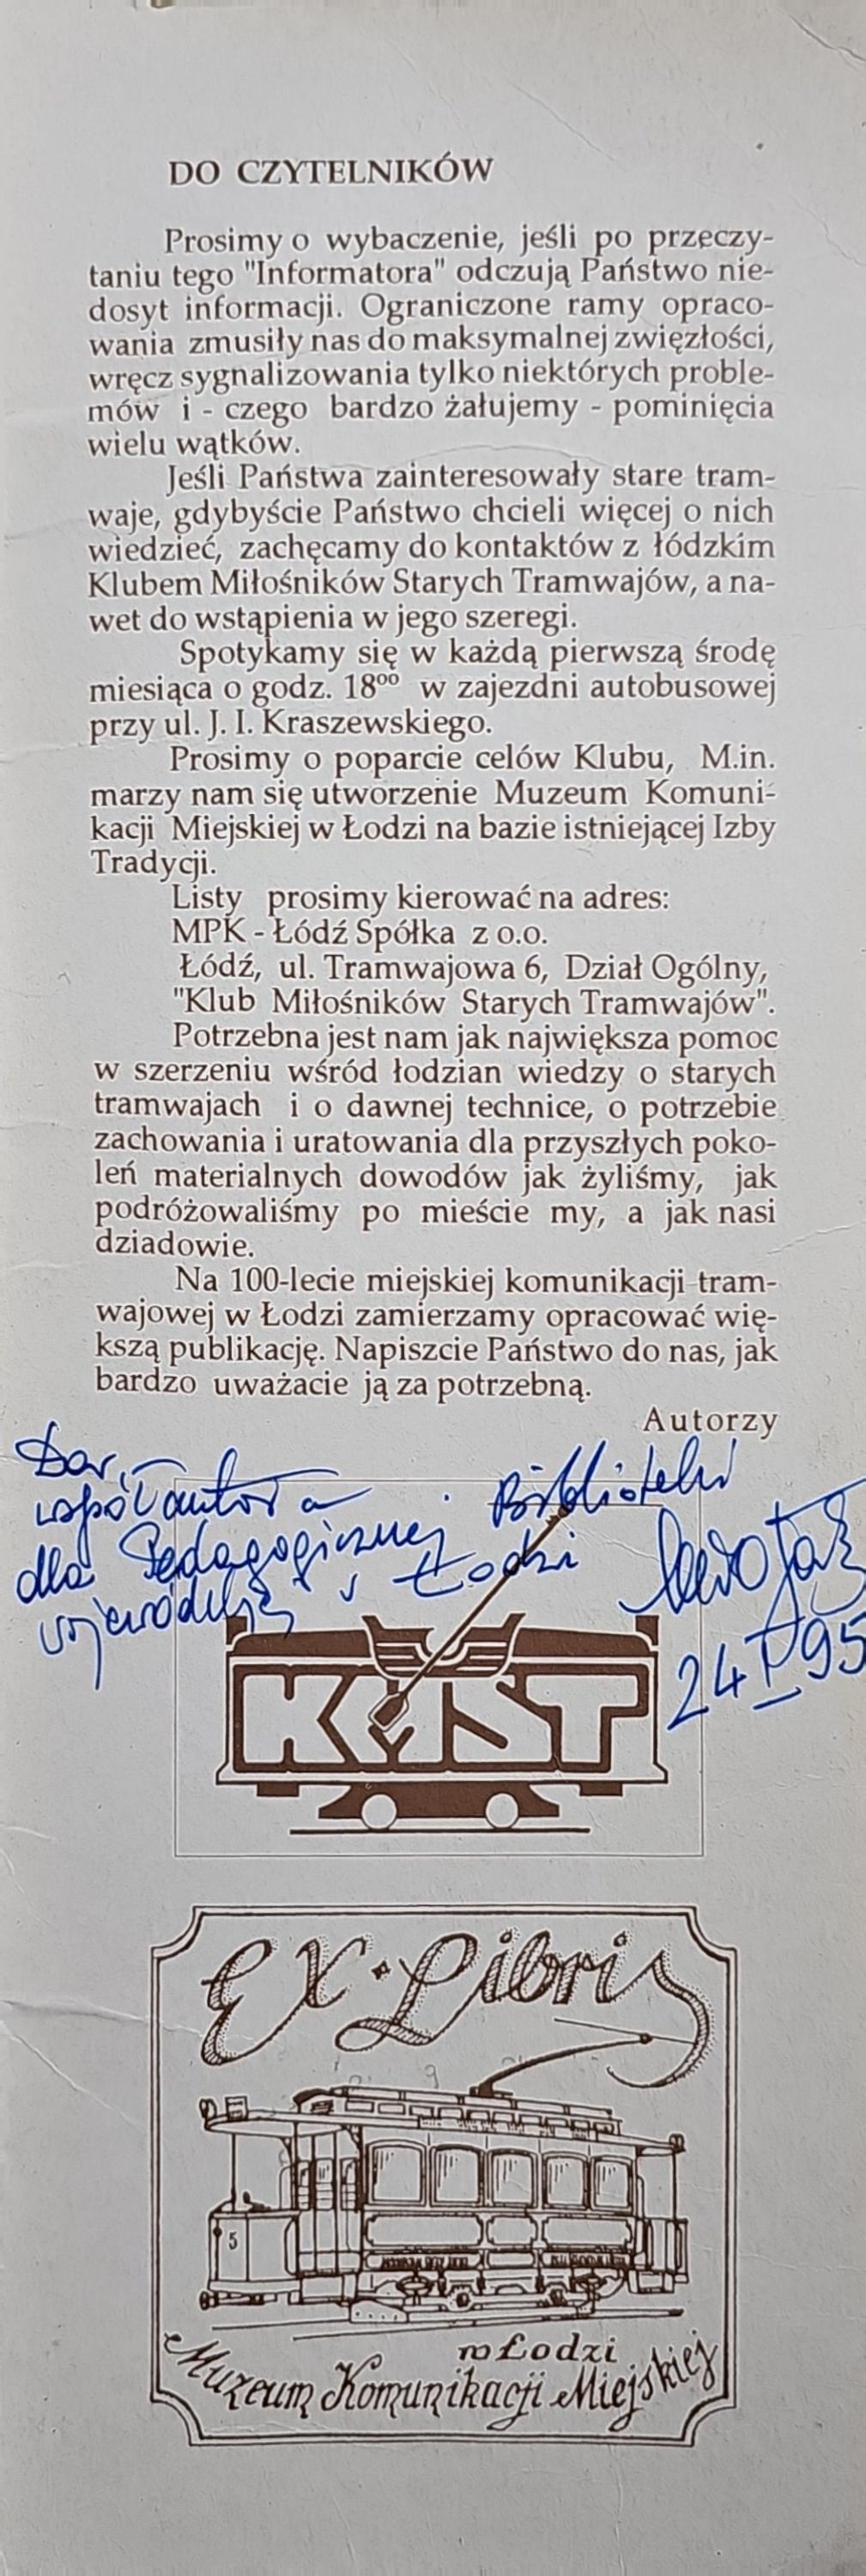 DO CZYTELNIKÓW
Prosimy o wybaczenie, jeśli po przeczy-
taniu tego "Informatora" odczują Państwo nie-
dosyt informacji. Ograniczone ramy opraco-
wania zmusiły nas do maksymalnej zwięzłości,
wręcz sygnalizowania tylko niektórych proble-
mów i - czego bardzo żałujemy - pominięcia
wielu wątków.
Jeśli Państwa zainteresowały stare tram-
waje, gdybyście Państwo chcieli więcej o nich
wiedzieć, zachęcamy do kontaktów z łódzkim
Klubem Miłośników Starych Tramwajów, a na-
wet do wstąpienia w jego szeregi.
Spotykamy się w każdą pierwszą środę
miesiąca o godz. 18ºº w zajezdni autobusowej
przy ul. J. I. Kraszewskiego.
Prosimy o poparcie celów Klubu, M.in.
marzy nam się utworzenie Muzeum Komuni-
kacji Miejskiej w Łodzi na bazie istniejącej Izby
Tradycji.
Listy prosimy kierować na adres:
MPK - Łódź Spółka z o.o.
Łódź, ul. Tramwajowa 6, Dział Ogólny,
"Klub Miłośników Starych Tramwajów".
Potrzebna jest nam jak największa pomoc
w szerzeniu wśród łodzian wiedzy o starych
tramwajach i o dawnej technice, o potrzebie
zachowania i uratowania dla przyszłych poko-
leń materialnych dowodów jak żyliśmy, jak
podróżowaliśmy po mieście my, a jak nasi
dziadowie.
Na 100-lecie miejskiej komunikacji tram-
wajowej w Łodzi zamierzamy opracować wię-
kszą publikację. Napiszcie Państwo do nas, jak
bardzo uważacie ją za potrzebną.
Autorzy
Dar
współautora
dla Pedagogicznej Biblioteki
Wojewódzkiej w Łodzi
24 I 95
KMST
Ex Libris
5
w Łodzi
Muzeum Komunikacji Miejskiej